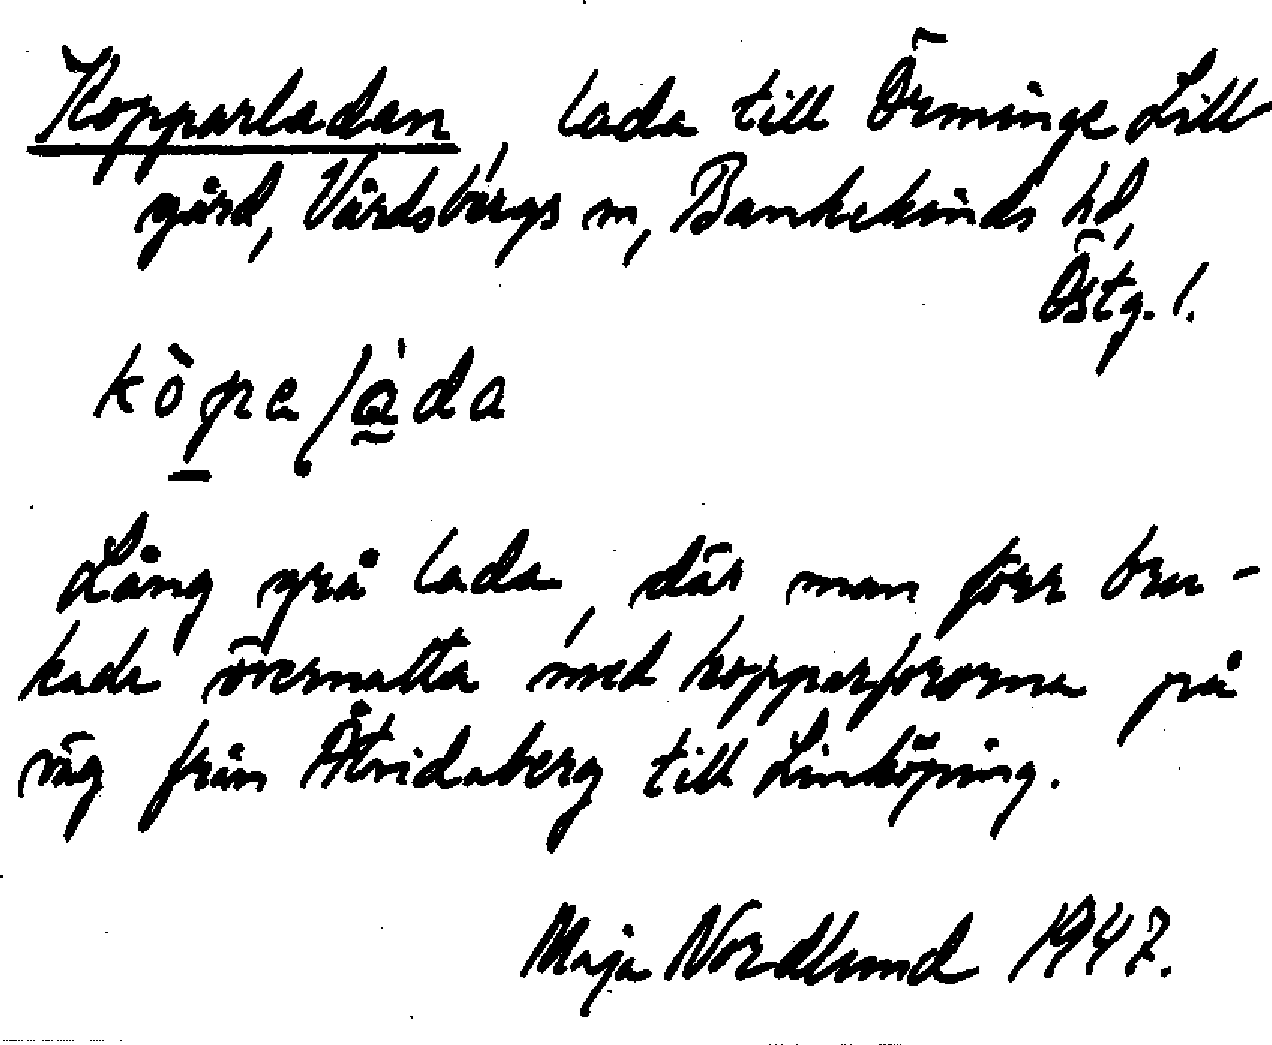 Kopparladan, lada till Örminge Lill
gård, Vårdsbergs sn, Bankekinds hd,
Östg. l.
kòpa/àda
Lång grå lada, där man förr bru-
kade övernatta med kopparfororna på
väg från Åtvidaberg till Linköping.
Maja Nordlund 1947.